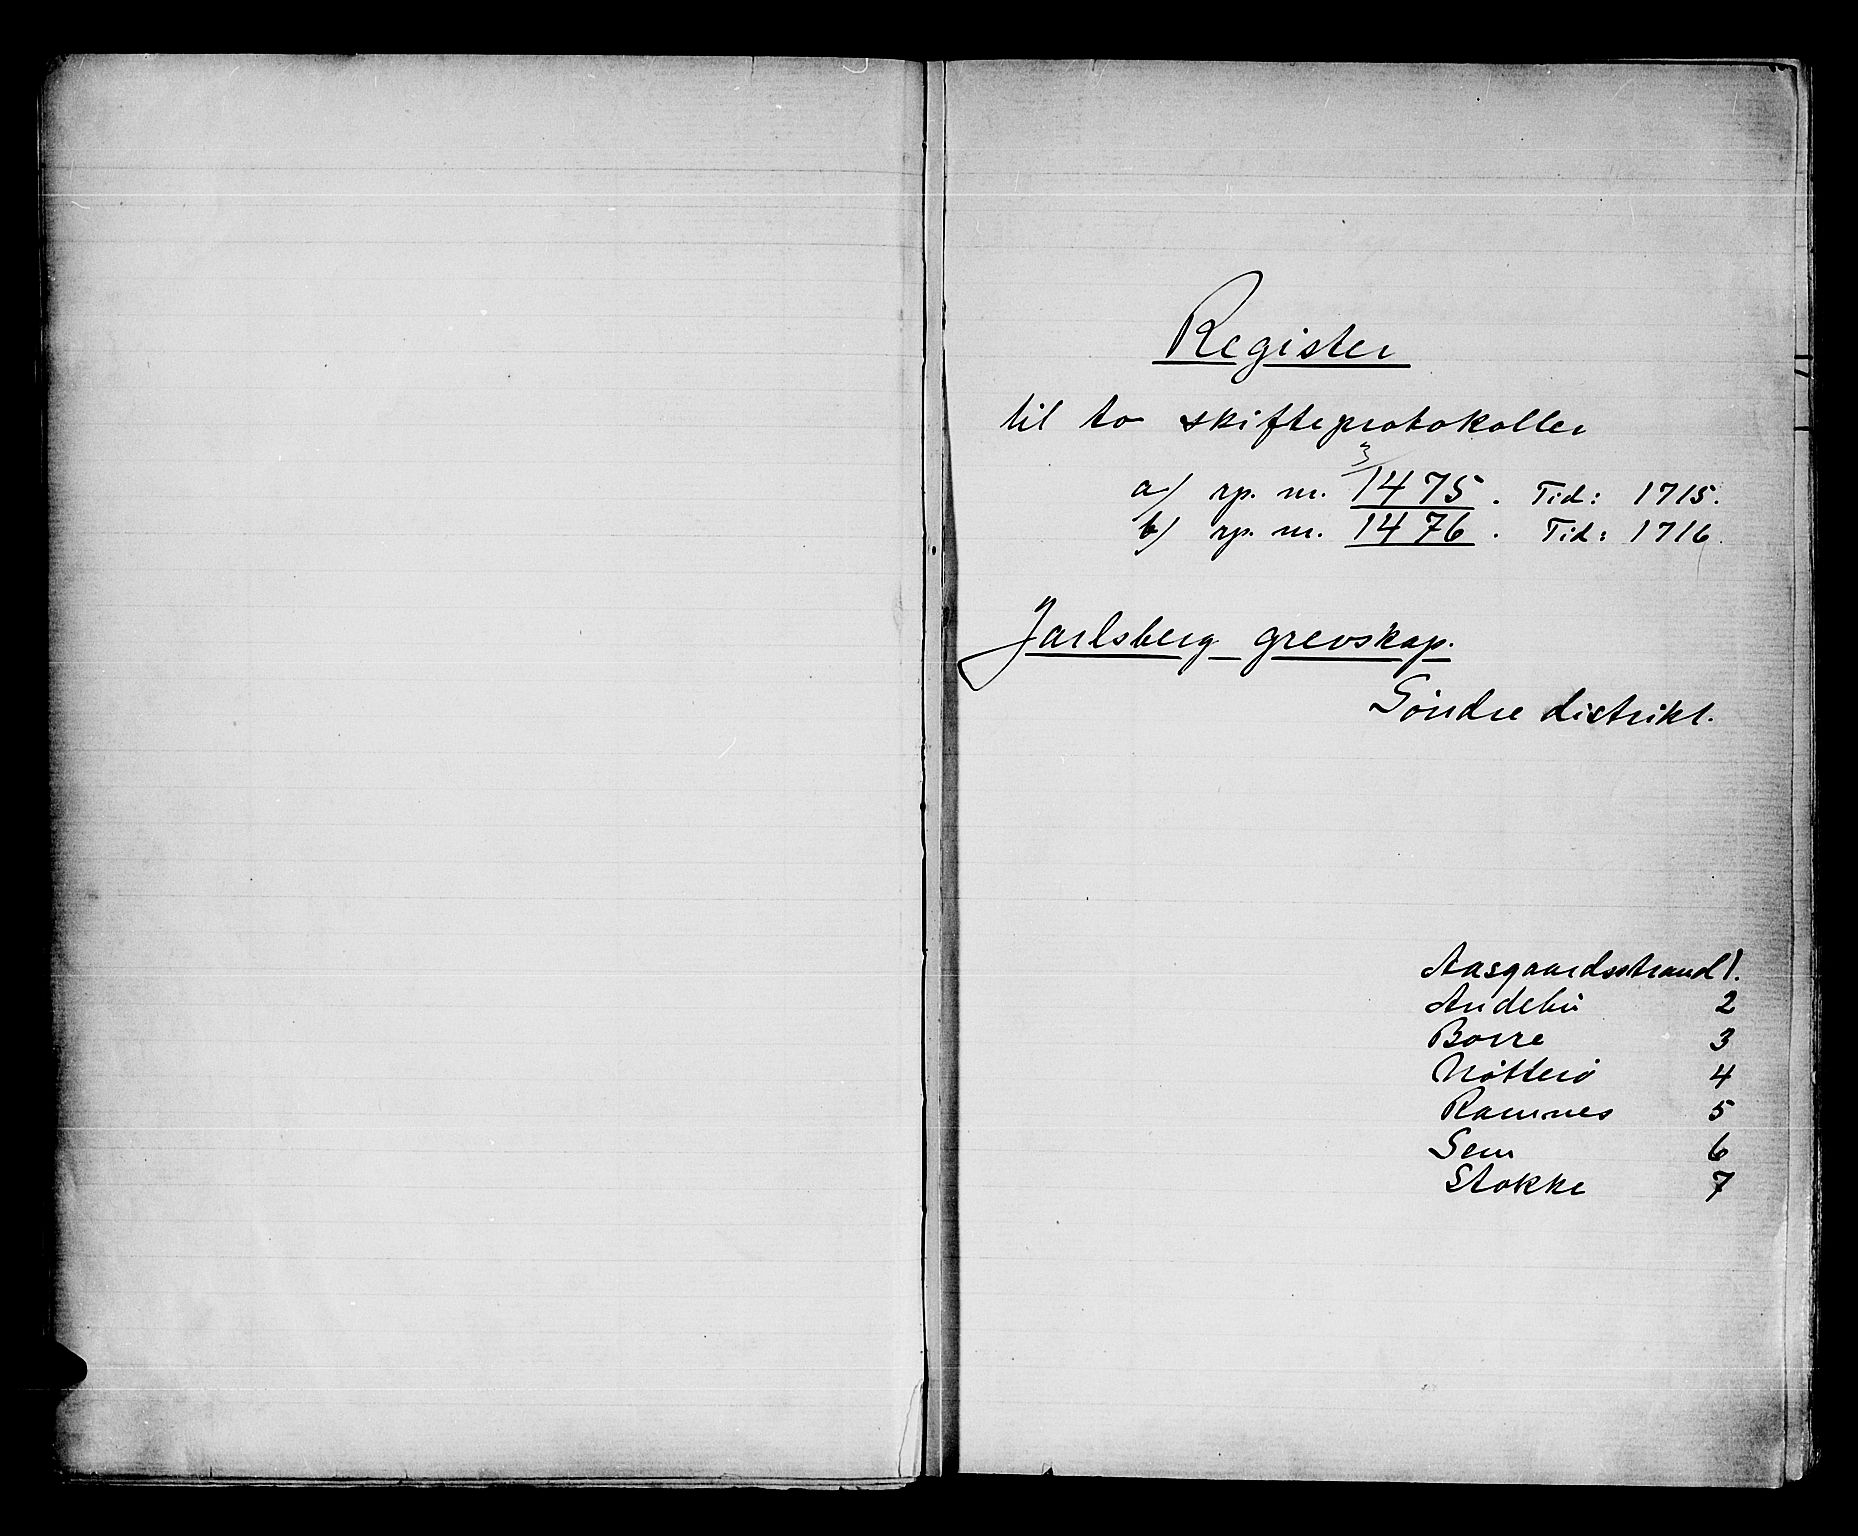 Register
til to skifteprotokoller
3
a/ rp. nr. 1475. Tid: 1715.
b/ rp. nr. 1476. Tid: 1716.
Jarlsberg grevskap.
Söndre distrikt.
Aasgaardsstrand 1.
Andebu 2
Borre 3
Nötterö 4
Ramnes 5
Sem 6
Stokke 7